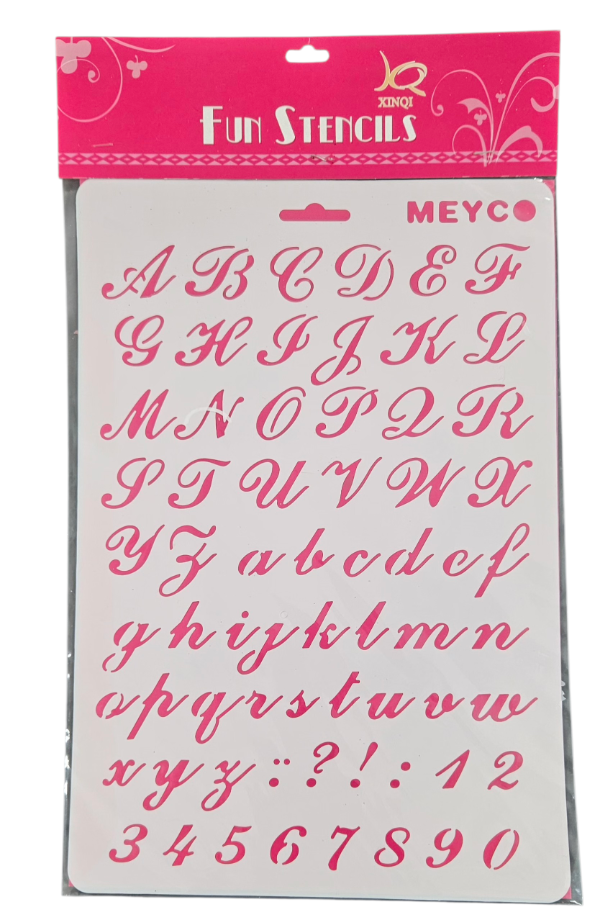 XINQI
FUN STENCILS
MEYCO
A B C D E F
G H I J K L
M N O P Q R
S T U V W X
Y Z a b c d e f
g h i j k l m n
o p q r s t u v w
x y z : ¨ ? ! : 1 2
3 4 5 6 7 8 9 0